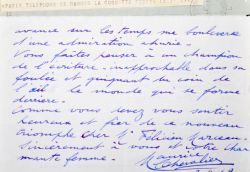 avance sur les temps me bouleverse
d'une admiration ahurie.
Vous faites penser à un champion
de l'écriture inapprochable dans sa
foulée et guignant du coin de
l'œil le monde qui se forme
derrière.
Comme vous devez vous sentir
heureux et fier de ce nouveau
triomphe cher Mr Félicien Marceau
Sincèrement à vous et votre char
mante femme.
Maurice
Chevalier